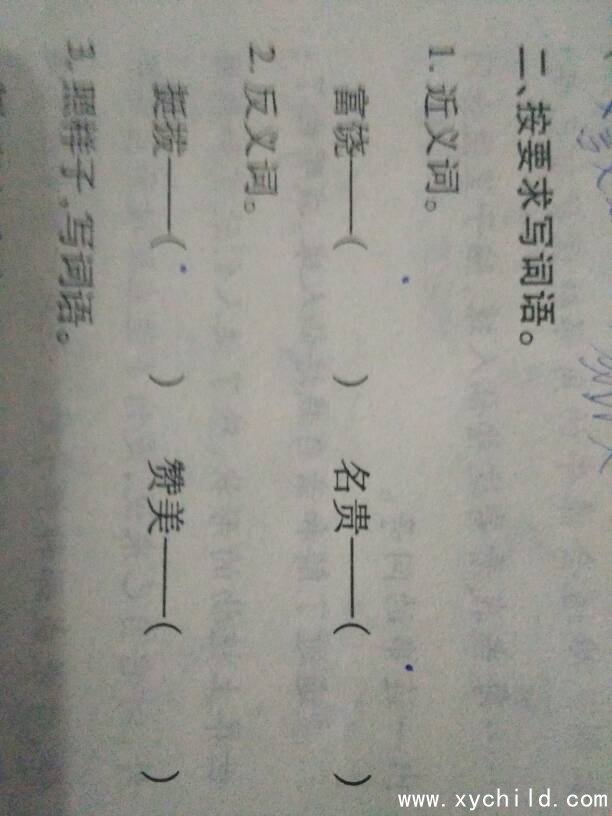 二、按要求写词语。
1. 近义词。
富饶——( ) 名贵——( )
2. 反义词。
挺拔——( ) 赞美——( )
3. 照样子,写词语。
www.xychild.com